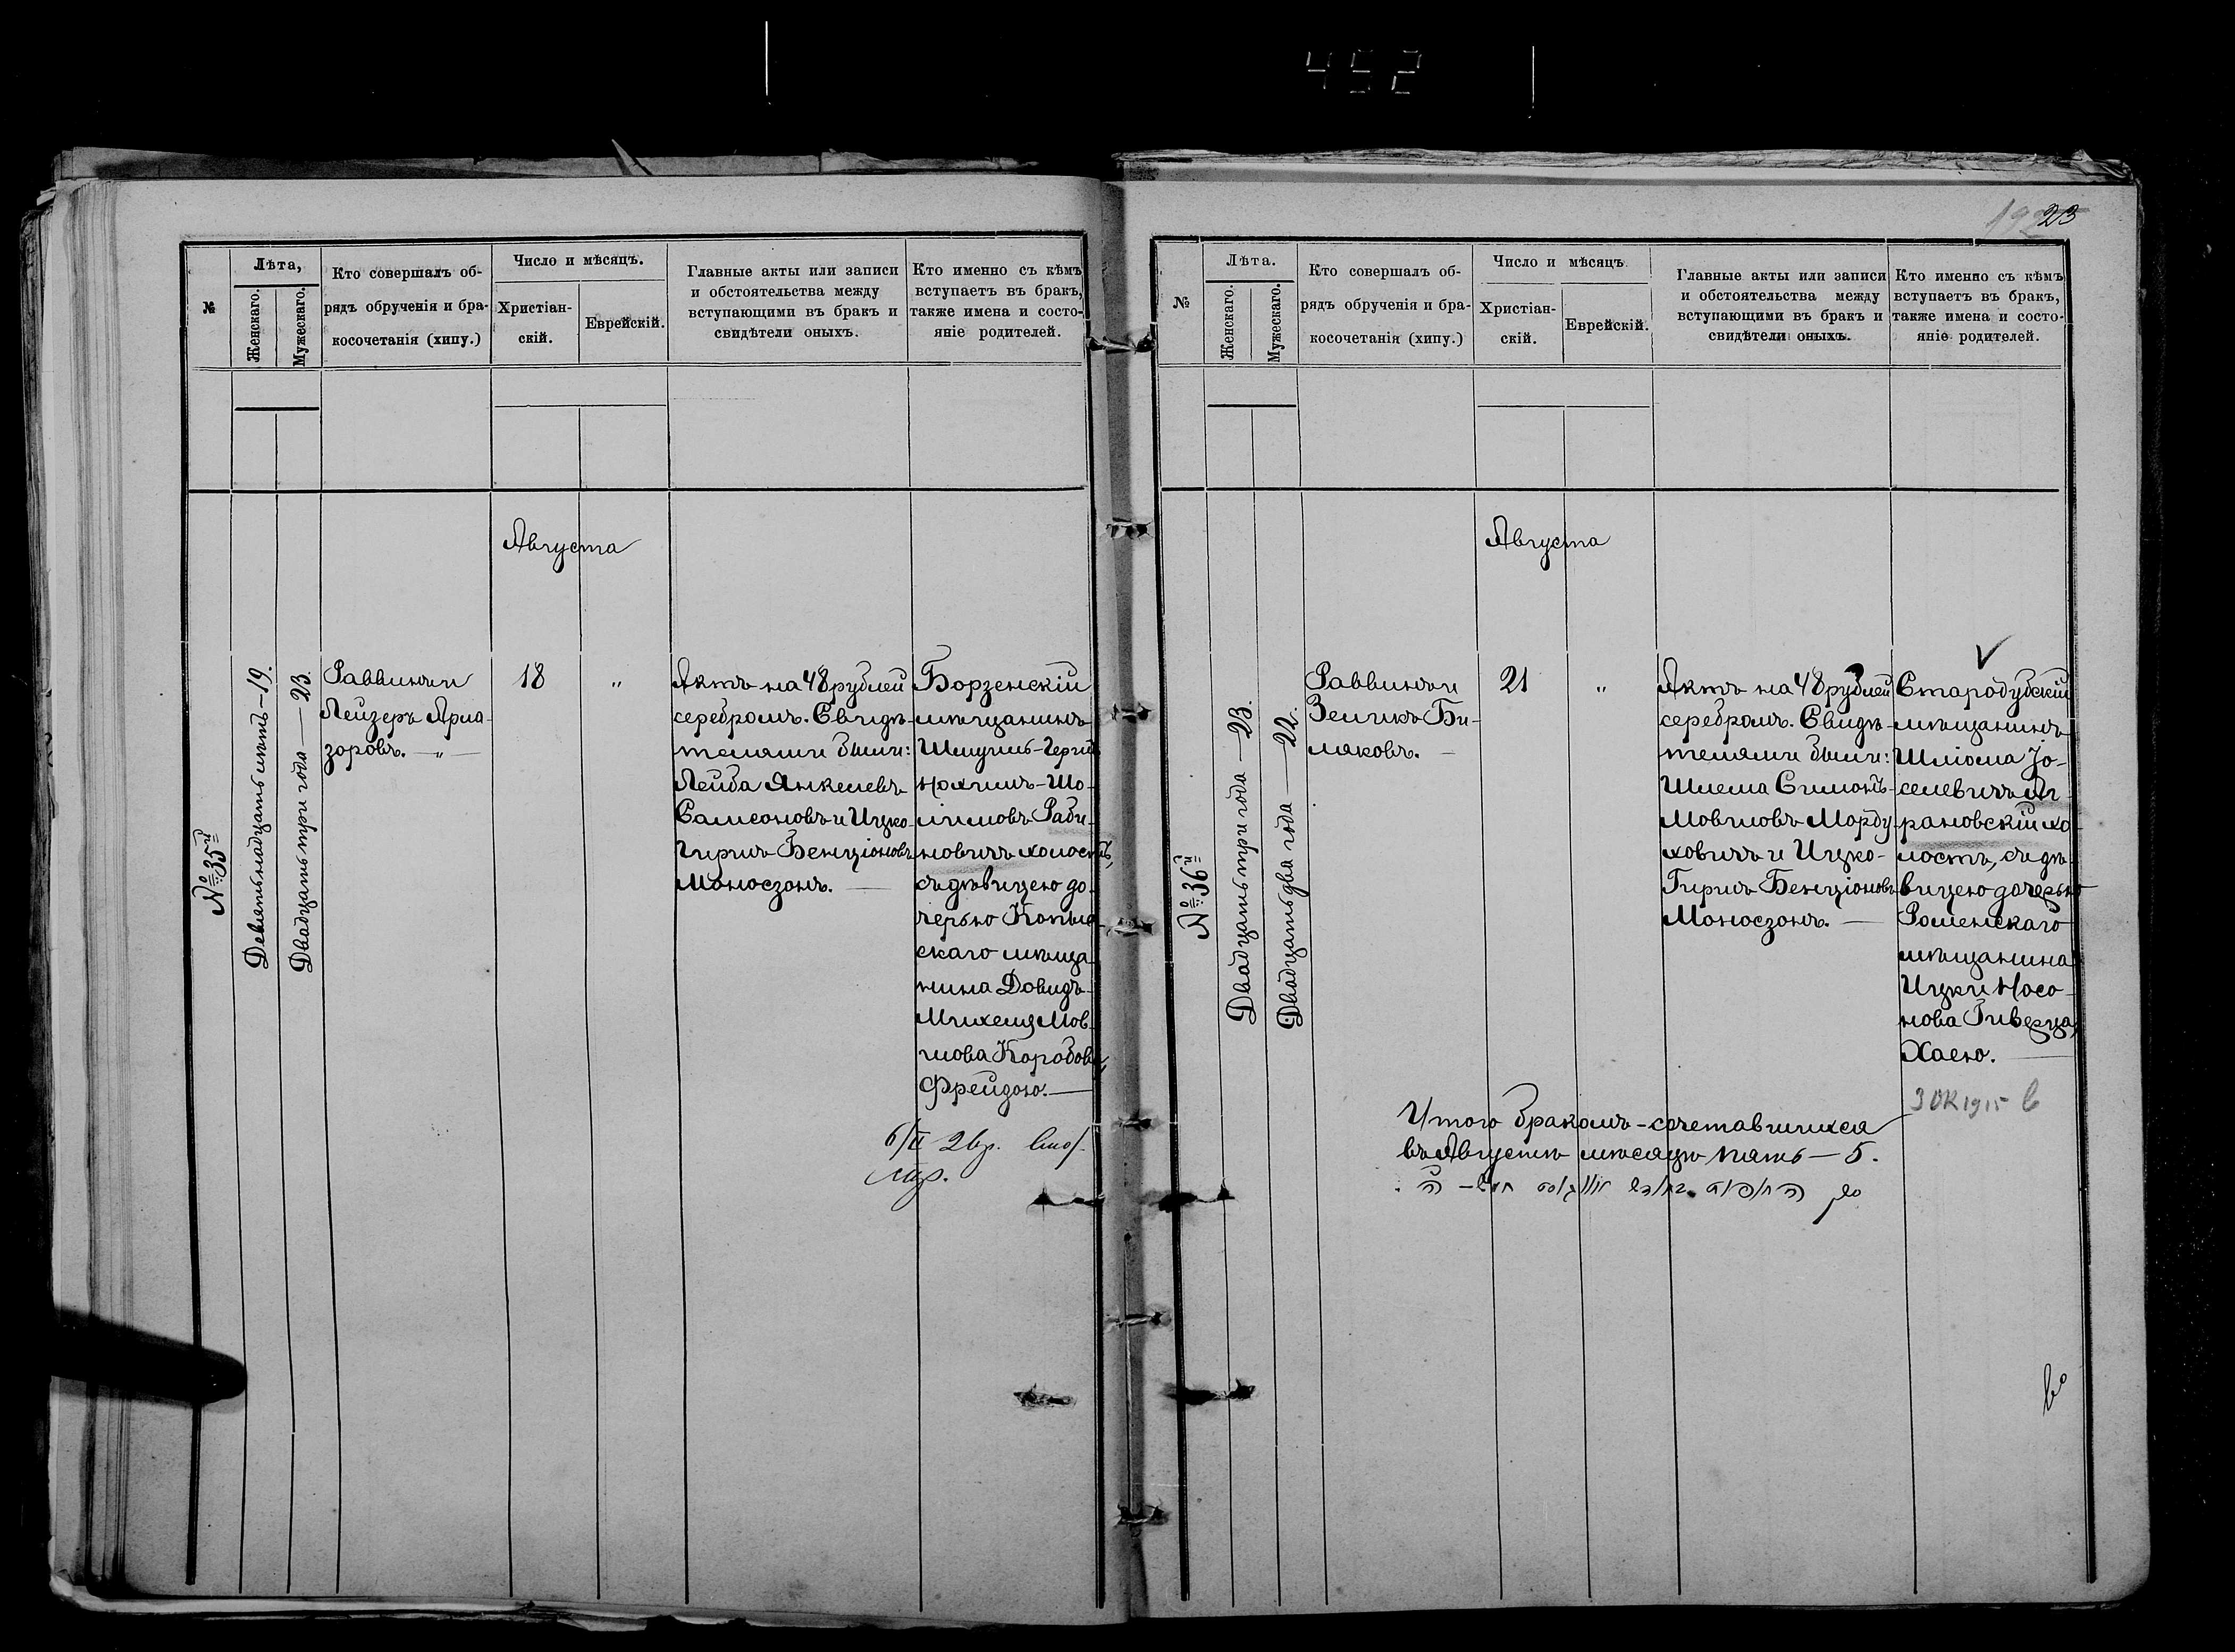 452
№
Лѣта,
Женскаго.
Мужескаго.
Кто совершалъ об-
рядъ обрученія и бра-
косочетанія (хипу.)
Число и мѣсяцъ.
Христіан-
скій.
Еврейскій.
Главные акты или записи
и обстоятельства между
вступающими въ бракъ и
свидѣтели оныхъ.
Кто именно съ кѣмъ
вступаетъ въ бракъ,
также имена и состо-
яніе родителей.
Августа
№ 35й
Девятьнадцать лѣтъ — 19.
Двадцать три года — 23.
Раввинъ и
Лейзеръ Ариа-
зоровъ. — " —
18
"
Актъ на 48 рублей
серебромъ. Свидѣ-
телями были:
Лейба Янкелевъ
Самсоновъ и Ицко-
Гиршъ Бенціоновъ
Моносзонъ. —
Борзенскій
мѣщанинъ
Шмуиль-Герцъ
Нохимъ-Шо-
лимовъ Раби-
новичъ холостъ,
съ дѣвицею до-
черью Копыс-
скаго мѣща-
нина Довидъ-
Михеля Мов-
шова Коробова,
Фрейдою. —
6/II 2 вр.
23
№
Лѣта.
Женскаго.
Мужескаго.
Кто совершалъ об-
рядъ обрученія и бра-
косочетанія (хипу.)
Число и мѣсяцъ
Христіан-
скій.
Еврейскій.
Главные акты или записи
и обстоятельства между
вступающими въ бракъ и
свидѣтели оныхъ.
Кто именно съ кѣмъ
вступаетъ въ бракъ,
также имена и состо-
яніе родителей.
Августа
№ 36й
Двадцать три года — 23.
Двадцать два года — 22.
Раввинъ и
Зеликъ Би-
ляковъ. —
21
"
Актъ на 48 рублей
серебромъ. Свидѣ-
телями были:
Шлема Симонъ-
Мовшовъ Морду-
ховичъ и Ицко-
Гиршъ Бенціоновъ
Моносзонъ. —
Стародубскій
мѣщанинъ
Шліома Іо-
селевичъ Аг-
рановскій хо-
лостъ, съ дѣ-
вицею дочерью
Роменскаго
мѣщанина
Ицки Носо-
нова Гиверца,
Хаею. —
3 ок 1915 в
Итого бракомъ-сочетавшихся
въ Августѣ мѣсяцѣ пять — 5.